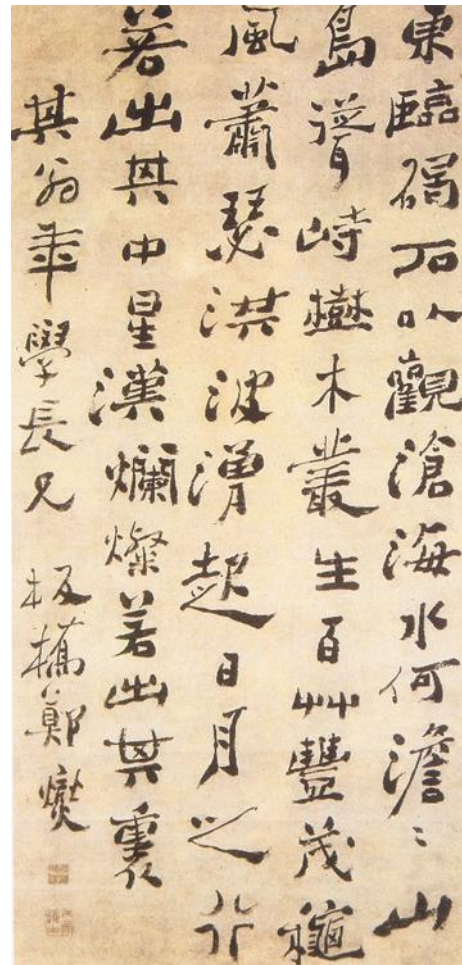 東臨碣石以觀滄海水何澹〻山
島聳峙樹木叢生百艸豐茂穐
風蕭瑟洪波湧起日月之行
若出其中星漢爛燦若出其裏
其翁年學長兄 板橋鄭燮